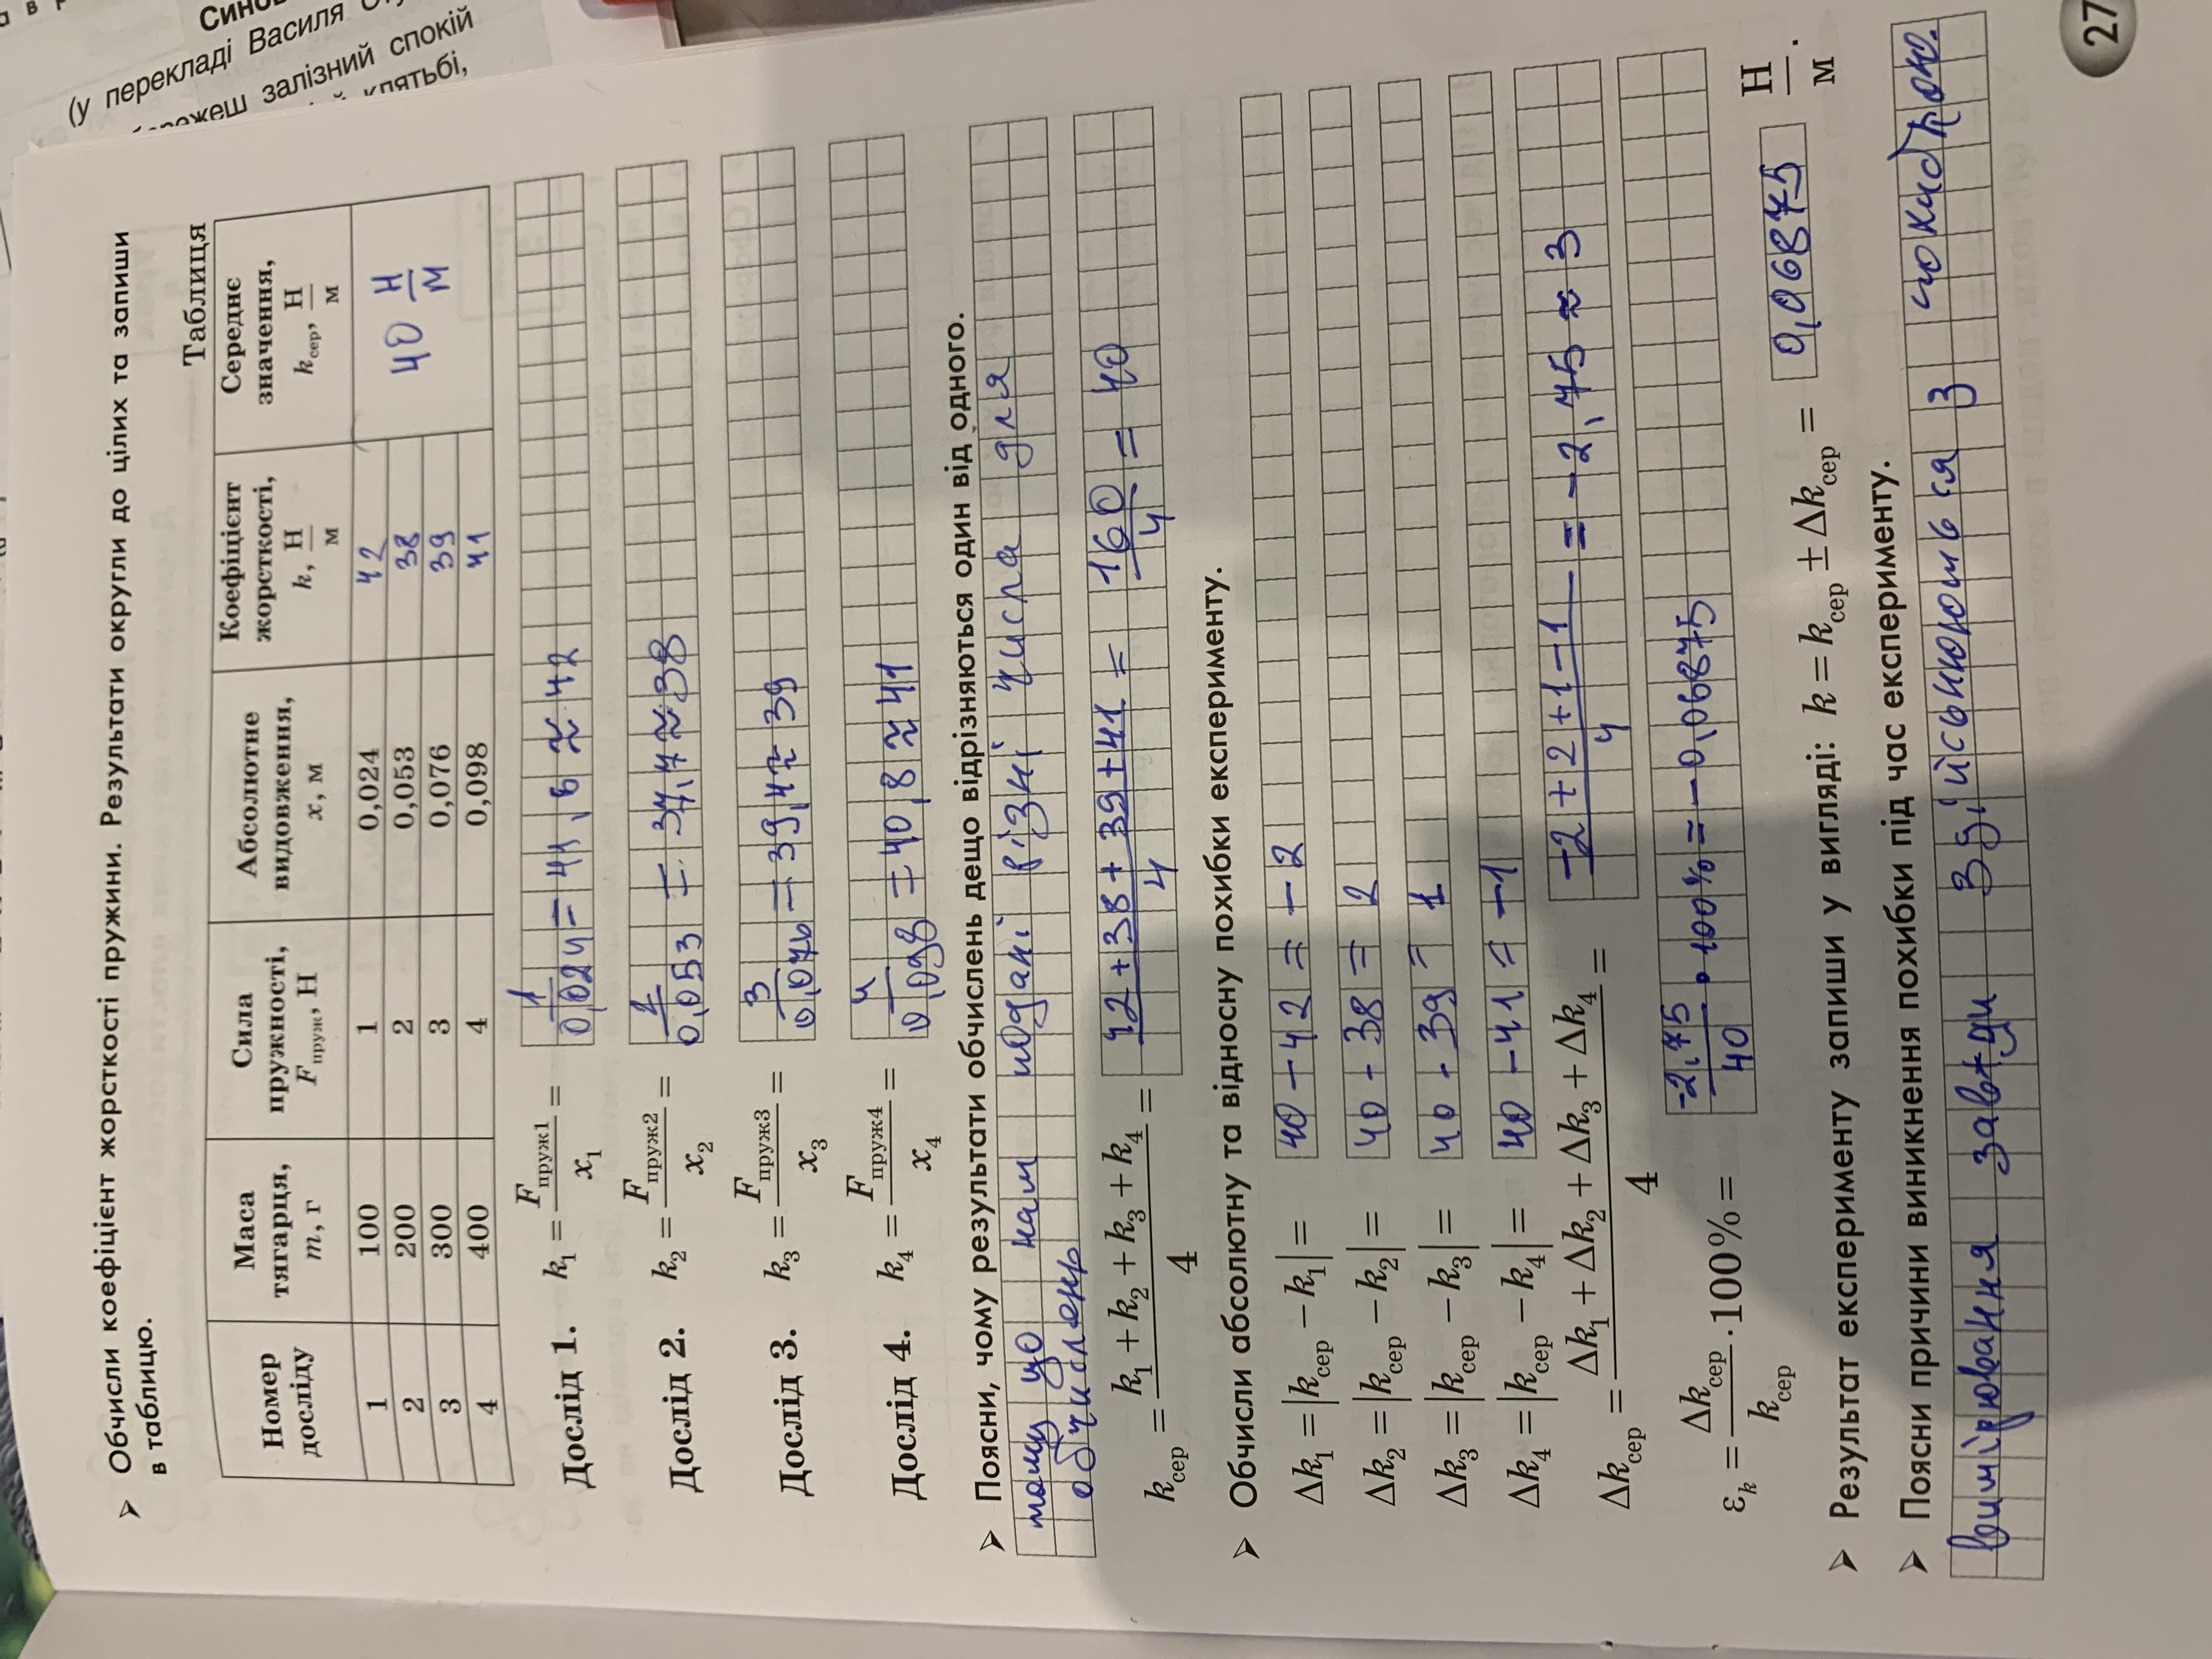 Синов
(у перекладі Василя Сту
бережеш залізний спокій
клятьбі,
➤ Обчисли коефіцієнт жорсткості пружини. Результати округли до цілих та запиши
в таблицю.
Таблиця
Номер досліду | Маса тягарця, m, г | Сила пружності, Fпруж, Н | Абсолютне видовження, x, м | Коефіцієнт жорсткості, k, Н/м | Середнє значення, kсер, Н/м
1 | 100 | 1 | 0,024 | 42 | 40 Н/м
2 | 200 | 2 | 0,053 | 38
3 | 300 | 3 | 0,076 | 39
4 | 400 | 4 | 0,098 | 41
Дослід 1. k₁ = Fпруж1/x₁ = 1/0,024 = 41,6 ≈ 42
Дослід 2. k₂ = Fпруж2/x₂ = 2/0,053 = 37,7 ≈ 38
Дослід 3. k₃ = Fпруж3/x₃ = 3/0,076 = 39,4 ≈ 39
Дослід 4. k₄ = Fпруж4/x₄ = 4/0,098 = 40,8 ≈ 41
➤ Поясни, чому результати обчислень дещо відрізняються один від одного.
тому що нам подані різні числа для
обчислень
kсер = (k₁ + k₂ + k₃ + k₄)/4 = (42+38+39+41)/4 = 160/4 = 40
➤ Обчисли абсолютну та відносну похибки експерименту.
Δk₁ = |kсер − k₁| = 40 − 42 = −2
Δk₂ = |kсер − k₂| = 40 - 38 = 2
Δk₃ = |kсер − k₃| = 40 - 39 = 1
Δk₄ = |kсер − k₄| = 40 − 41 = −1
Δkсер = (Δk₁ + Δk₂ + Δk₃ + Δk₄)/4 = (−2+2+1−1)/4 = −2,75 ≈ 3
εk = Δkсер/kсер · 100% = −2,75/40 · 100% = −0,06875
➤ Результат експерименту запиши у вигляді: k = kсер ± Δkсер = 0,06875 Н/м.
➤ Поясни причини виникнення похибки під час експерименту.
вимірювання завжди здійснюються з похибкою.
27